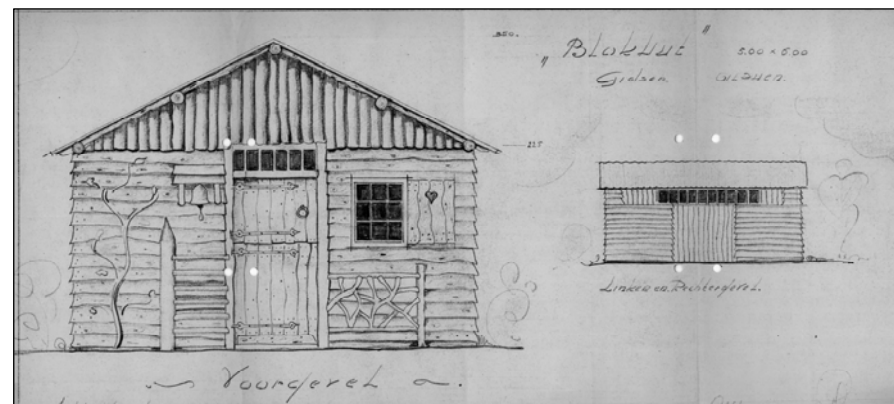 350.
„ Blokhut "
5.00 x 6.00
Gielsen
225
Linker en Rechtergevel.
Voorgevel